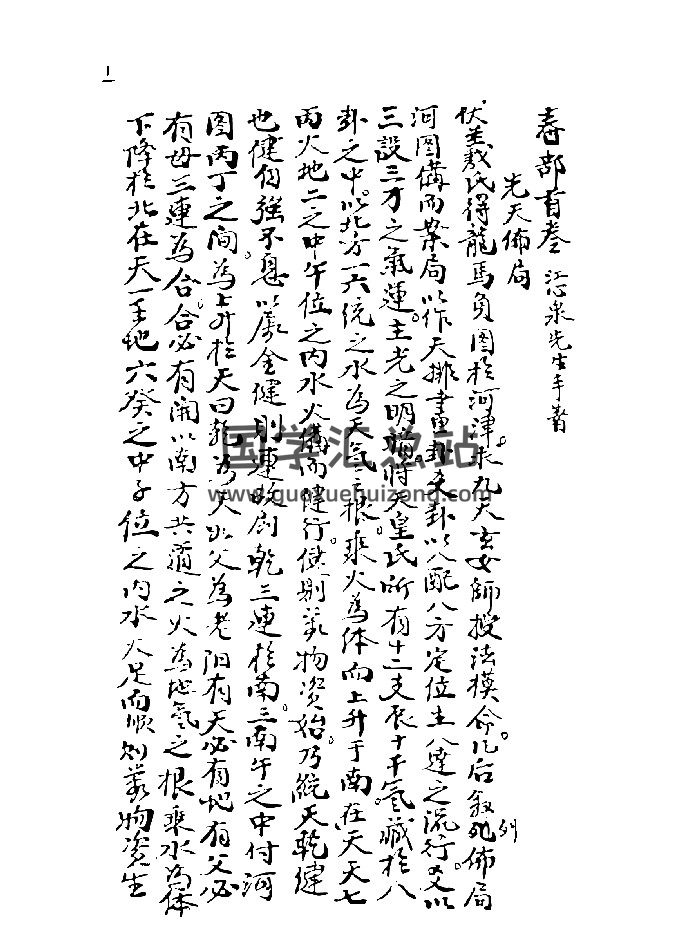 1
春部首卷 沁泉先生手著
先天佈局
伏羲氏得龍馬負图於河津求九天玄女師授法模命几后敘列佈局
河图備而業局以作天排畫卦爻卦以八配八方定位主八達之流行又以
三設三才之氣運主光之明揚將天皇氏所有十二支辰十干氣藏於八
卦之中以北方一六統之水為天氣之根乘火為体而上升于南在天天七
丙火地二之中午位之内水火構而健行健則萬物資始乃統天乾健
也健自強不息以屬金健則連故剖乾三連於南三南午之中付河
图丙丁之间為上升於天曰乾為天以父為老阳有天必有地有父必
有母三連為合合必有開以南方共通之火為地氣之根乘水為体
下降於北在天一壬地六癸之中子位之内水火足而順则萬物资生
国学汇总站
www.guoxuehuizong.com